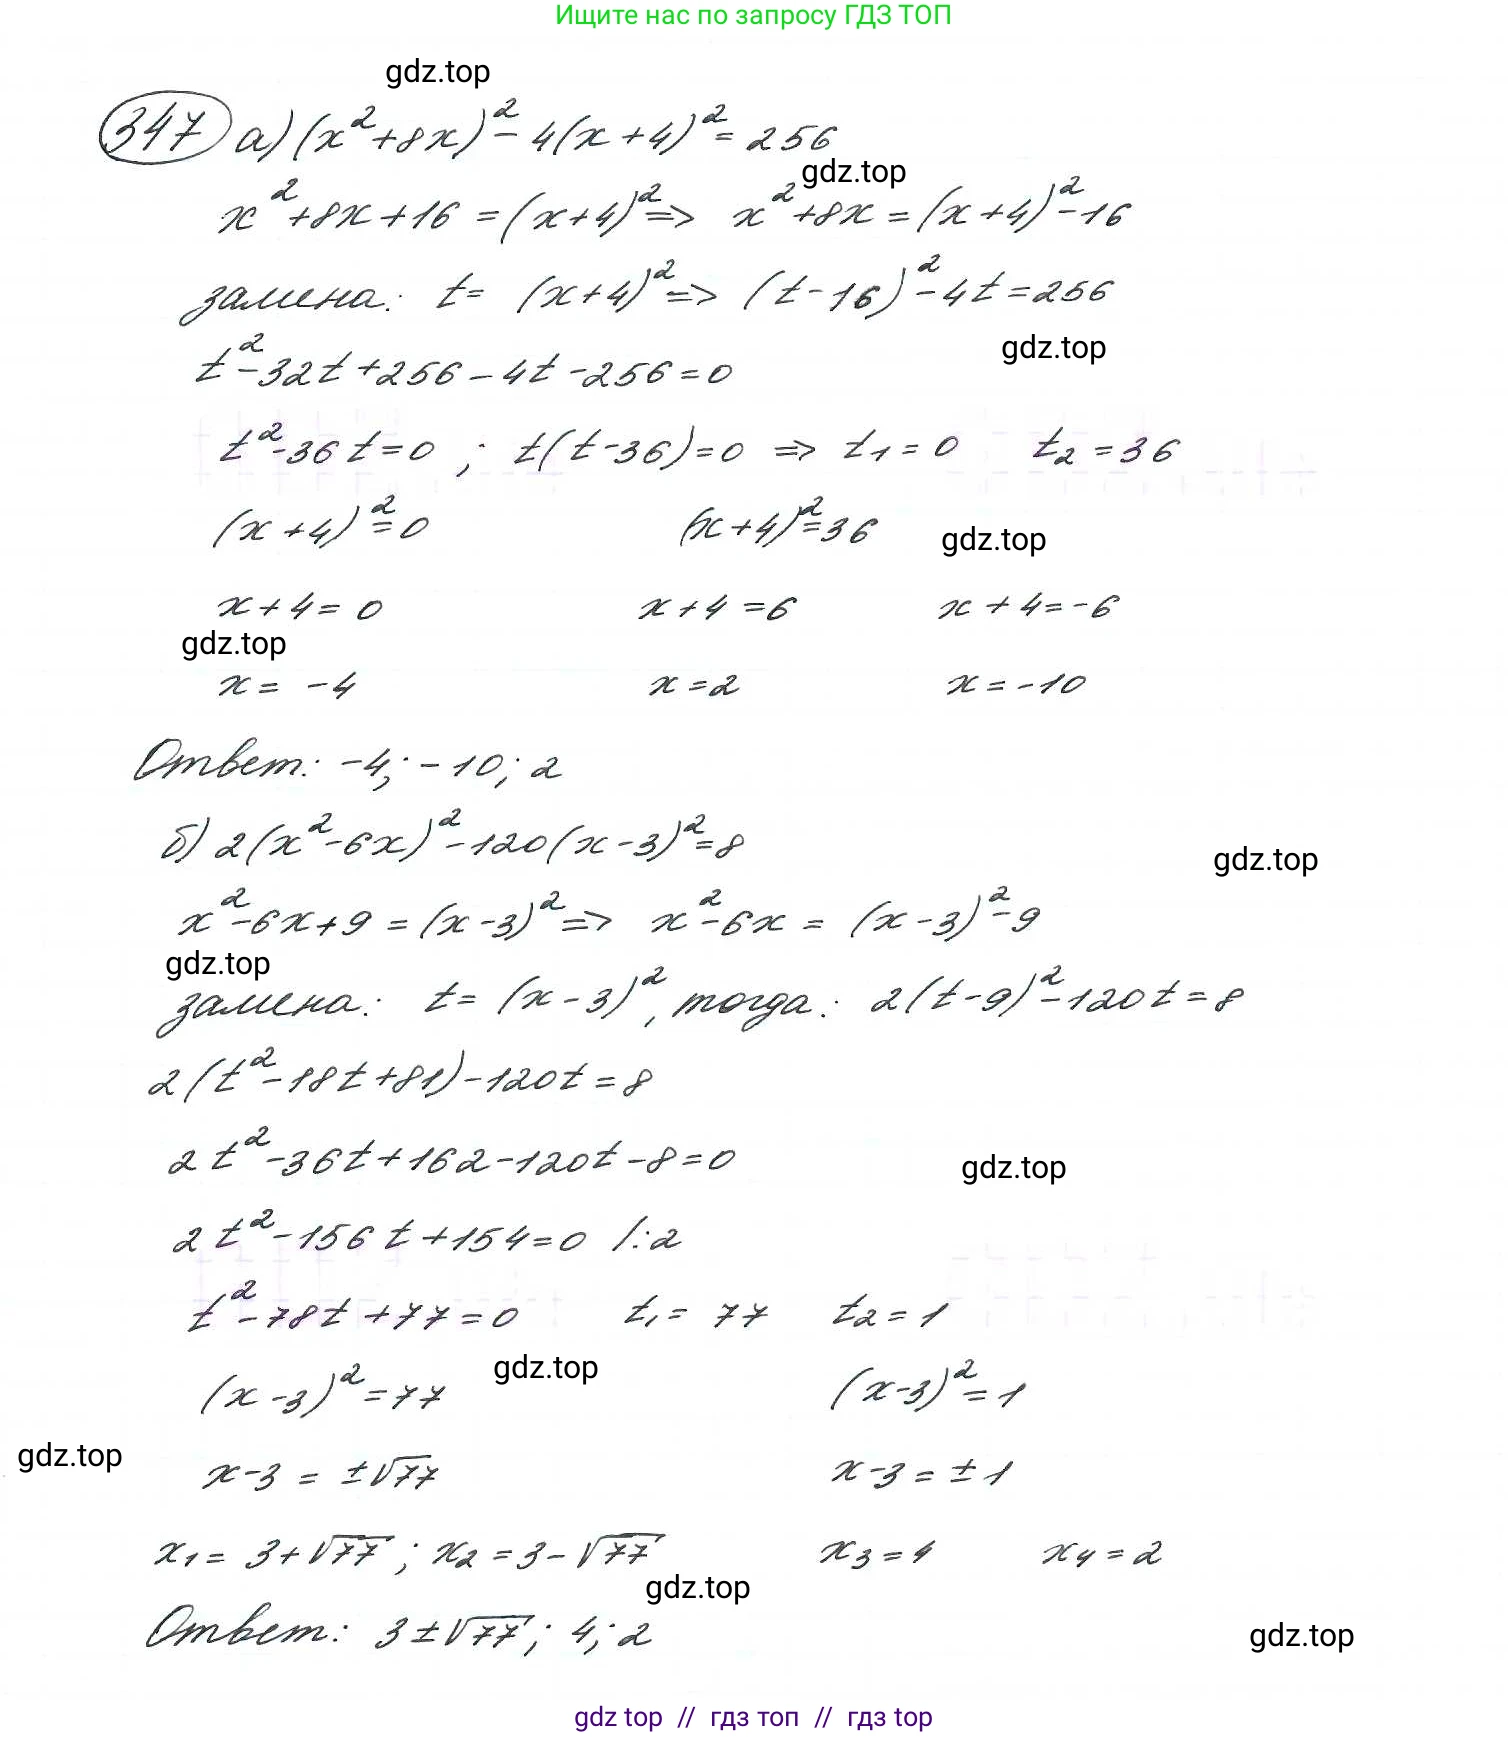 Ищите нас по запросу ГДЗ ТОП
gdz.top
347 а) (x²+8x)² - 4(x+4)² = 256
gdz.top
x²+8x+16 = (x+4)² => x²+8x = (x+4)²-16
замена: t = (x+4)² => (t-16)² - 4t = 256
gdz.top
t²-32t+256-4t-256=0
t²-36t=0 ; t(t-36)=0 => t₁=0 t₂=36
(x+4)²=0 (x+4)²=36
gdz.top
x+4=0 x+4=6 x+4=-6
gdz.top
x=-4 x=2 x=-10
Ответ: -4; -10; 2
б) 2(x²-6x)²-120(x-3)²=8
gdz.top
x²-6x+9=(x-3)² => x²-6x = (x-3)²-9
gdz.top
замена: t=(x-3)², тогда: 2(t-9)²-120t=8
2(t²-18t+81)-120t=8
2t²-36t+162-120t-8=0
gdz.top
2t²-156t+154=0 /:2
t²-78t+77=0 t₁=77 t₂=1
gdz.top
(x-3)²=77 (x-3)²=1
gdz.top
x-3=±√77 x-3=±1
x₁=3+√77; x₂=3-√77 x₃=4 x₄=2
gdz.top
Ответ: 3±√77; 4; 2
gdz.top
gdz top // гдз топ // гдз top